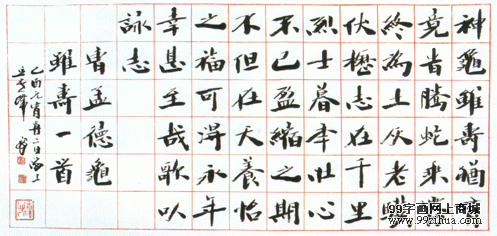 神龜雖壽猶有
竟旹騰虵乘霧
終為土灰老驥
伏櫪志在千里
烈士暮年壯心
不已盈縮之期
不但在天養怡
之福可得永年
幸甚至哉歌以
詠志
曹孟德龜
雖壽一首
乙酉元宵
99字画网上商城
www.99zihua.com